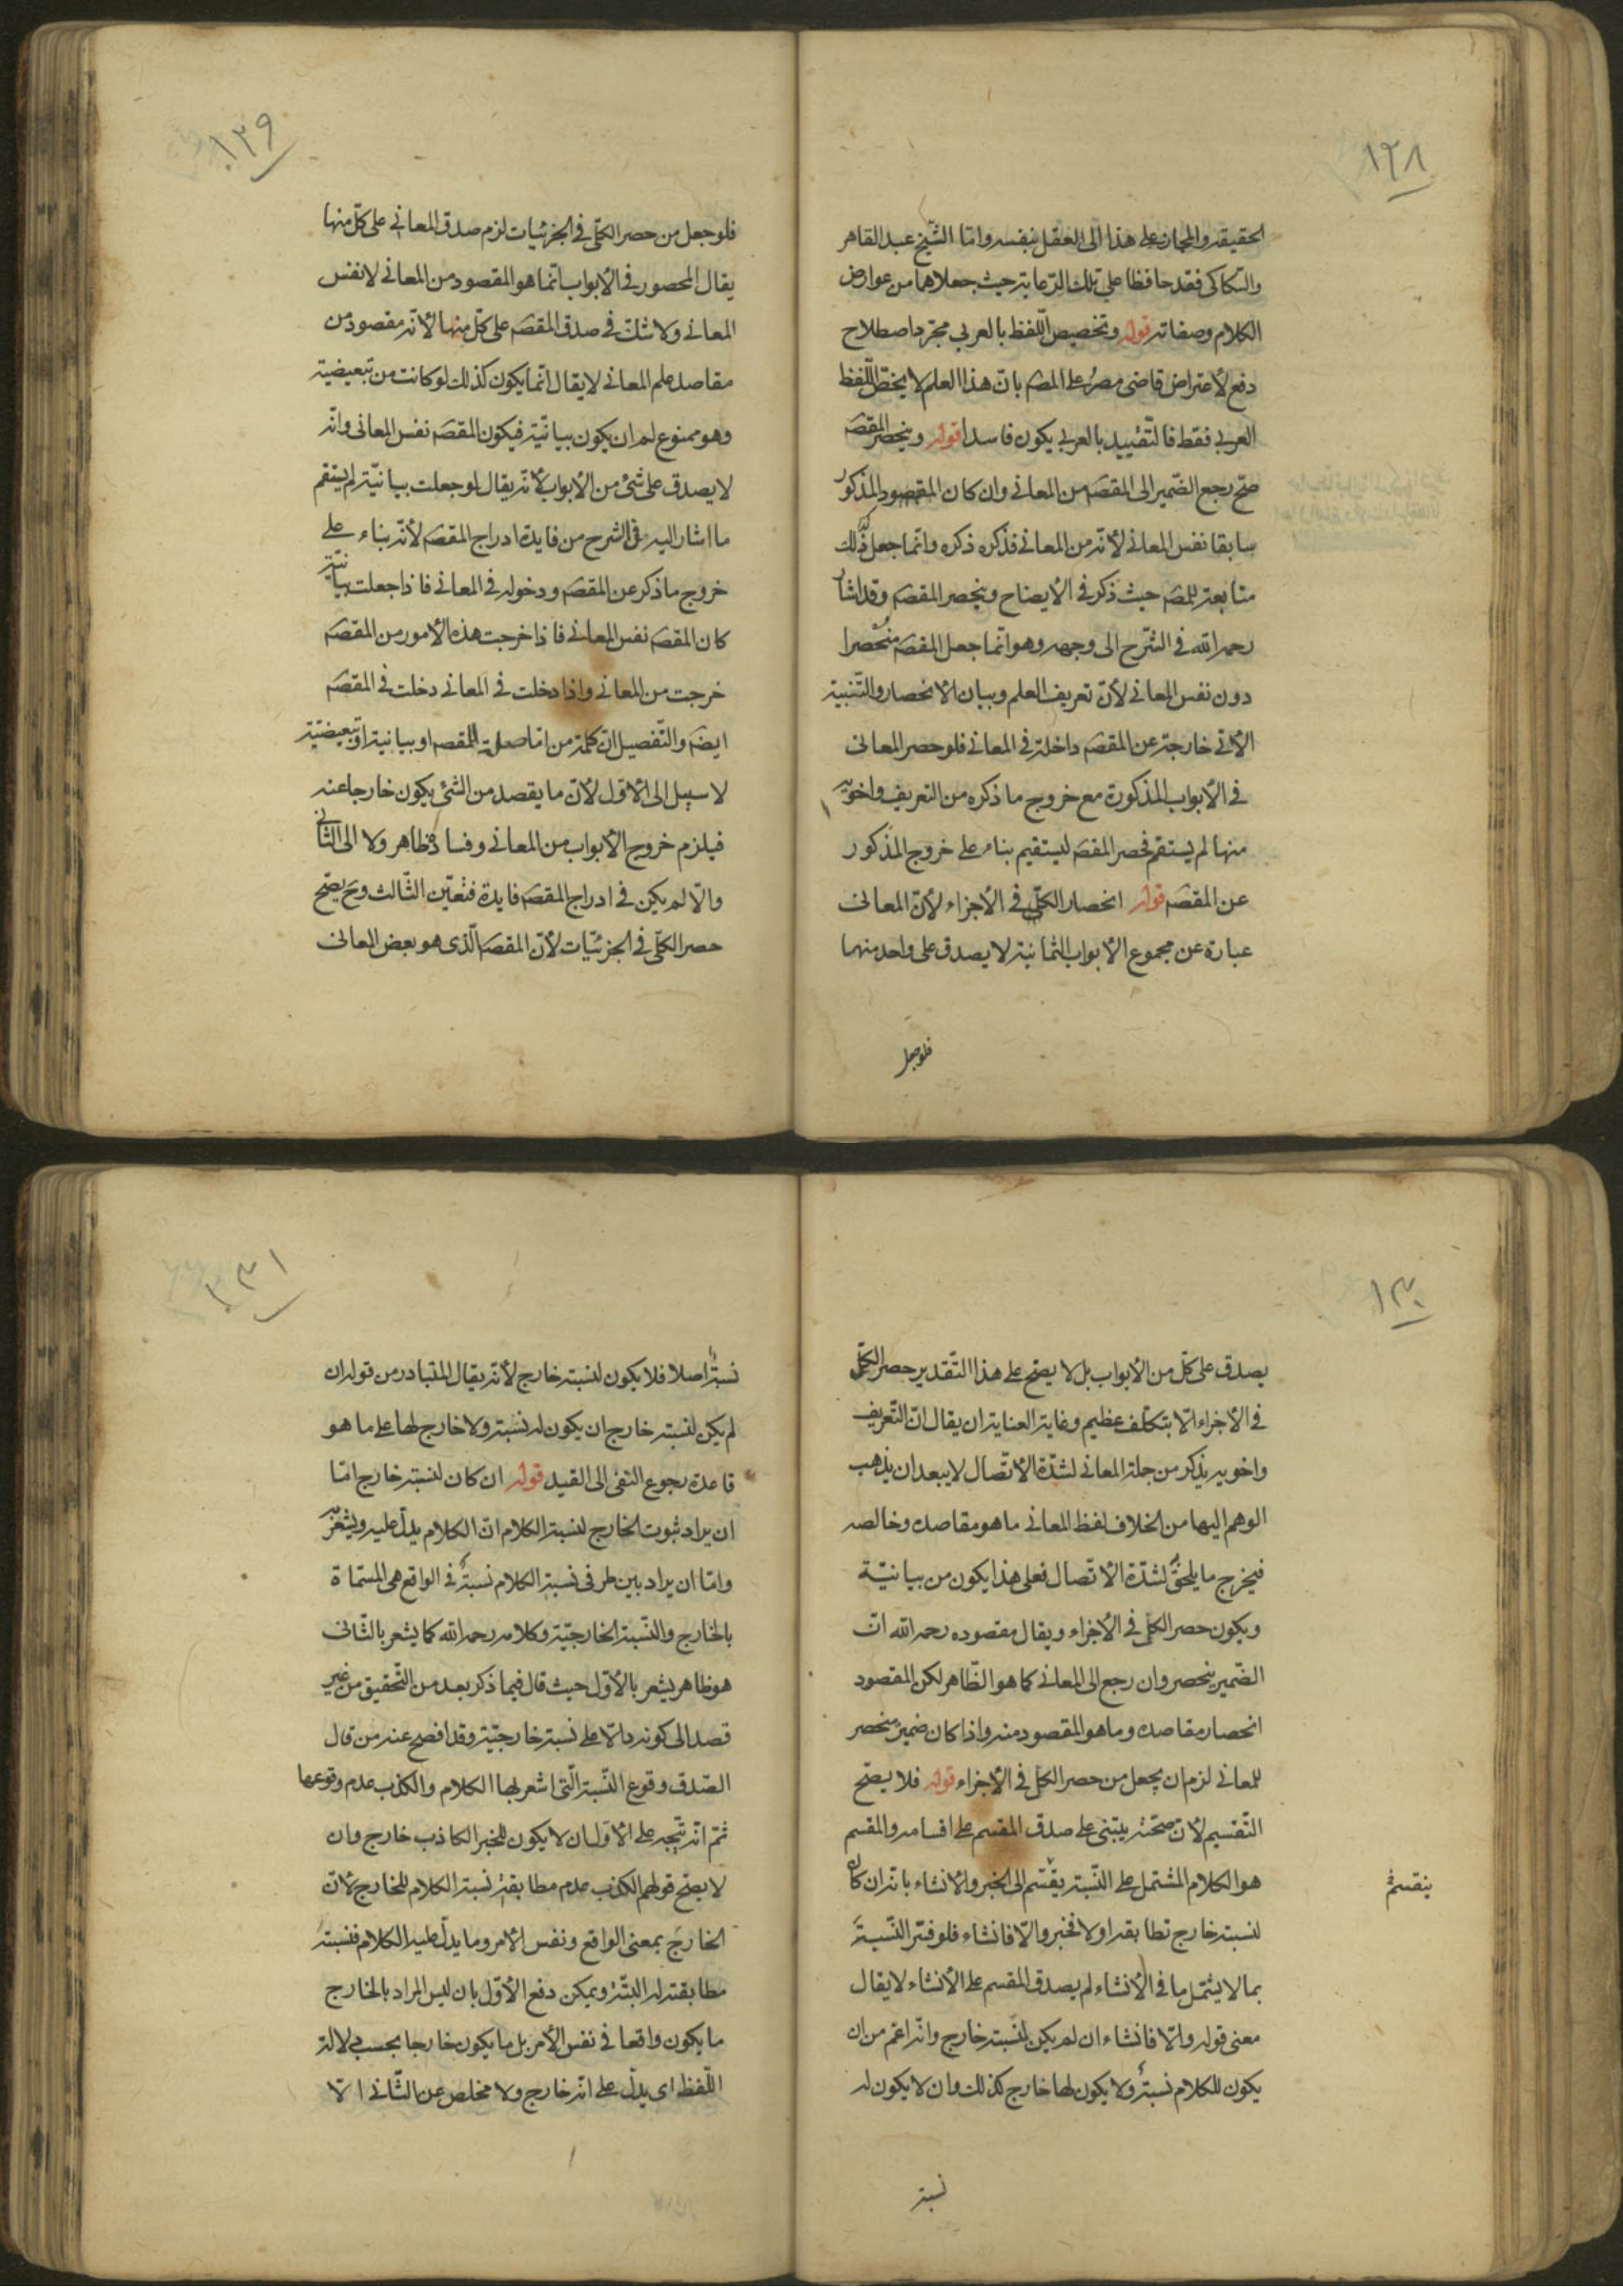 ١٢٨
الحقيقه والمجاز على هذا الى العقل بنفسه واما الشيخ عبد القاهر
والسكاكى فقد حافظا على تلك الرعاية حيث جعلاهما من عوارض
الكلام وصفاته قوله وتخصيص اللفظ بالعربي مجرد اصطلاح
دفع لأعتراض قاضى مصر على المصه بان هذا العلم لا يختص اللفظ
العربي فقط فالتقييد بالعربي يكون فاسدا قوله وينحصر المقصه
صح رجع الضمير الى المقصه من المعانى وان كان المقصود المذكور
سابقا نفس المعانى لأنه من المعانى فذكره ذكره وانما جعل ذلك
متابعة للمصه حيث ذكر فى الأيضاح وينحصر المقصه وقد اشار
رحمه الله فى الشرح الى وجهه وهو انما جعل المقصه منحصرا
دون نفس المعانى لأن تعريف العلم وبيان الانحصار والتنبيه
الأتى خارجة عن المقصه داخلة فى المعانى فلو حصر المعانى
فى الأبواب المذكورة مع خروج ما ذكره من التعريف واخويه
منها لم يستقم فحصر المقصه ليستقيم بناء على خروج المذكور
عن المقصه قوله انحصار الكلى فى الأجزاء لأن المعانى
عبارة عن مجموع الأبواب الثمانية لا يصدق على واحد منهما
فلو جعل
١٢٩
فلو جعل من حصر الكلى فى الجزئيات لزم صدق المعانى على كل منها
يقال المحصور فى الأبواب انما هو المقصود من المعانى لا نفس
المعانى ولا شك فى صدق المقصه على كل منها لأنه مقصود من
مقاصد علم المعانى لا يقال انما يكون كذلك لو كانت من تبعيضية
وهو ممنوع لم ان يكون بيانية فيكون المقصه نفس المعانى وانه
لا يصدق على شئ من الأبواب لأنه يقال لو جعلت بيانية لم يستقم
ما اشار اليه فى الشرح من فايدة ادراج المقصه لأنه بناء على
خروج ما ذكر عن المقصه ودخوله فى المعانى فاذا جعلت بيانية
كان المقصه نفس المعانى فاذا خرجت هذه الأمور من المقصه
خرجت من المعانى واذا دخلت فى المعانى دخلت فى المقصه
ايضه والتفصيل ان كلمة من اما صلة المقصه او بيانية او تبعيضية
لا سبيل الى الأول لأن ما يقصد من الشئ يكون خارجا عنه
فيلزم خروج الأبواب من المعانى وفساده ظاهر ولا الى الثانى
والا لم يكن فى ادراج المقصه فايدة فتعين الثالث وح يصح
حصر الكلى فى الجزئيات لأن المقصه الذى هو بعض المعانى
١٣٠
يصدق على كل من الأبواب بل لا يصح على هذا التقدير حصر الكل
فى الأجزاء الا بتكلف عظيم وغاية العناية ان يقال ان التعريف
واخويه يذكر من جملة المعانى لشدة الأتصال لا يبعد ان يذهب
الوهم اليها من الخلاف لفظ المعانى ما هو مقاصده وخالصه
فيخرج ما يلحق لشدة الأتصال فعلى هذا يكون من بيانية
ويكون حصر الكل فى الأجزاء ويقال مقصوده رحمه الله ان
الضمير ينحصر وان رجع الى المعانى كما هو الظاهر لكن المقصود
انحصار مقاصده وما هو المقصود منه واذا كان ضمير منحصر
للمعانى لزم ان يجعل من حصر الكل فى الأجزاء قوله فلا يصح
التقسيم لأن صحته يبتنى على صدق المقسم على اقسامه والمقسم
هو الكلام المشتمل على النسبة يقسم الى الخبر والأنشاء بانه ان كان
ينقسم
لنسبته خارج تطابقه او لا فخبر والا فانشاء فلو فسر النسبة
بما لا يشمل ما فى الأنشاء لم يصدق المقسم على الأنشاء لا يقال
معنى قوله والا فانشاء ان لم يكن لنسبته خارج وانه اعم من ان
يكون للكلام نسبة ولا يكون لها خارج كذلك وان لا يكون له
نسبة
١٣١
نسبة اصلا فلا يكون لنسبته خارج لأنه يقال المتبادر من قوله ان
لم يكن لنسبته خارج ان يكون له نسبة ولا خارج لها على ما هو
قاعدة رجوع النفى الى القيد قوله ان كان لنسبته خارج اما
ان يراد ثبوت الخارج لنسبة الكلام ان الكلام يدل عليه ويشعر به
واما ان يراد بين طرفى نسبة الكلام نسبة فى الواقع هى المسماة
بالخارج والنسبة الخارجية وكلامه رحمه الله كما يشعر بالثانى
هو ظاهر يشعر بالأول حيث قال فيما ذكر بعد من التحقيق من غير
قصد الى كونه دالا على نسبة خارجية وقد افصح عنه من قال
الصدق وقوع النسبة التى اشعر بها الكلام والكذب عدم وقوعها
ثم انه يتجه على الأول ان لا يكون للخبر الكاذب خارج وان
لا يصح قولهم الكذب عدم مطابقة نسبة الكلام للخارج لأن
الخارج بمعنى الواقع ونفس الأمر وما يدل عليه الكلام فنسبته
مطابقته له البتة ويمكن دفع الأول بان ليس المراد بالخارج
ما يكون واقعا فى نفس الأمر بل ما يكون خارجا بحسب دلالة
اللفظ اى يدل على انه خارج ولا مخلص عن الثانى الا